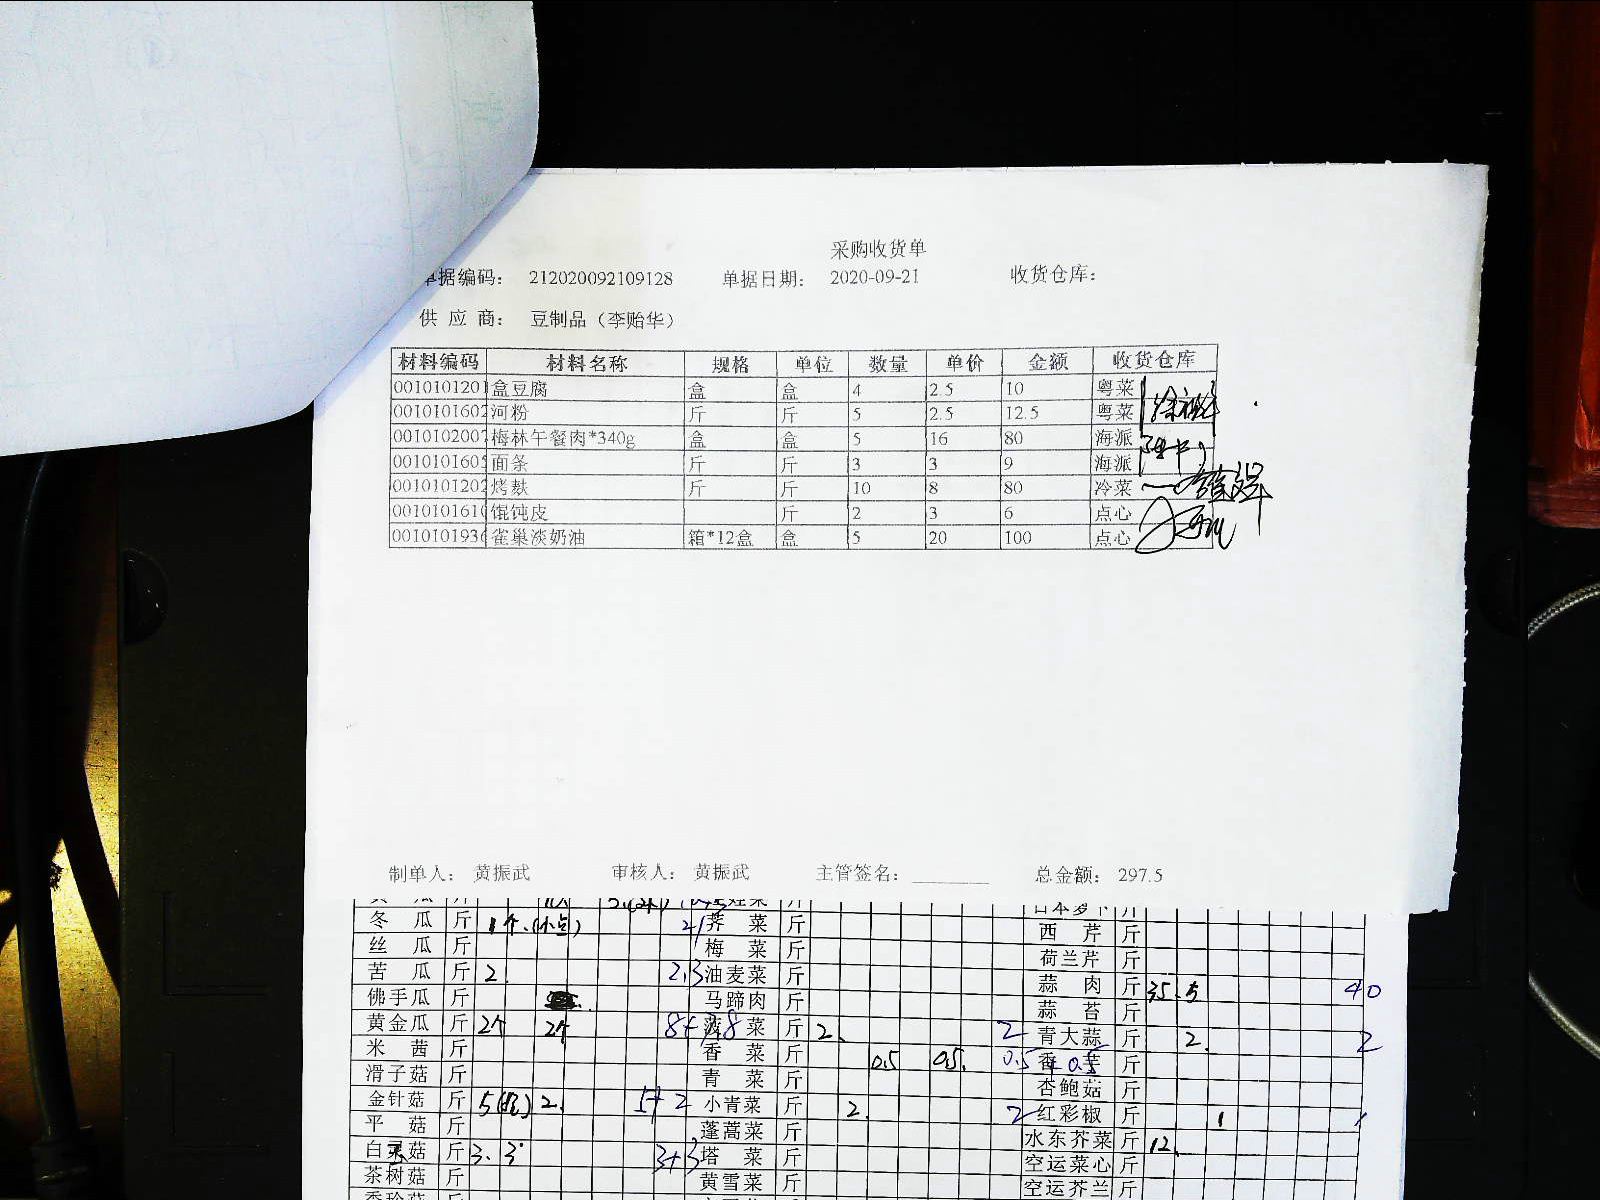 采购收货单
单据编码： 212020092109128 单据日期： 2020-09-21 收货仓库：
供 应 商： 豆制品（李贻华）
材料编码 材料名称 规格 单位 数量 单价 金额 收货仓库
0010101201 盒豆腐 盒 盒 4 2.5 10 粤菜
0010101602 河粉 斤 斤 5 2.5 12.5 粤菜
0010102007 梅林午餐肉*340g 盒 盒 5 16 80 海派
0010101605 面条 斤 斤 3 3 9 海派
0010101202 烤麸 斤 斤 10 8 80 冷菜
0010101610 馄饨皮 斤 2 3 6 点心
0010101936 雀巢淡奶油 箱*12盒 盒 5 20 100 点心
制单人： 黄振武 审核人： 黄振武 主管签名： 总金额： 297.5
冬 瓜 斤 1个.(小点) 荠 菜 斤 西 芹 斤
丝 瓜 斤 梅 菜 斤 荷兰芹 斤
苦 瓜 斤 2. 2.3 油麦菜 斤 蒜 肉 斤 35.5 40
佛手瓜 斤 马蹄肉 斤 蒜 苔 斤
黄金瓜 斤 2个 2个 菠 菜 斤 2. 2 青大蒜 斤 2. 2
米 茜 斤 香 菜 斤 0.5 0.5. 0.5+0.5 斤
滑子菇 斤 青 菜 斤 杏鲍菇 斤
金针菇 斤 5 2. 5+2 小青菜 斤 2. 2 红彩椒 斤 1 1
平 菇 斤 蓬蒿菜 斤 水东芥菜 斤 12.
白灵菇 斤 3. 3 3+3 塔 菜 斤 空运菜心 斤
茶树菇 斤 黄雪菜 斤 空运芥兰 斤